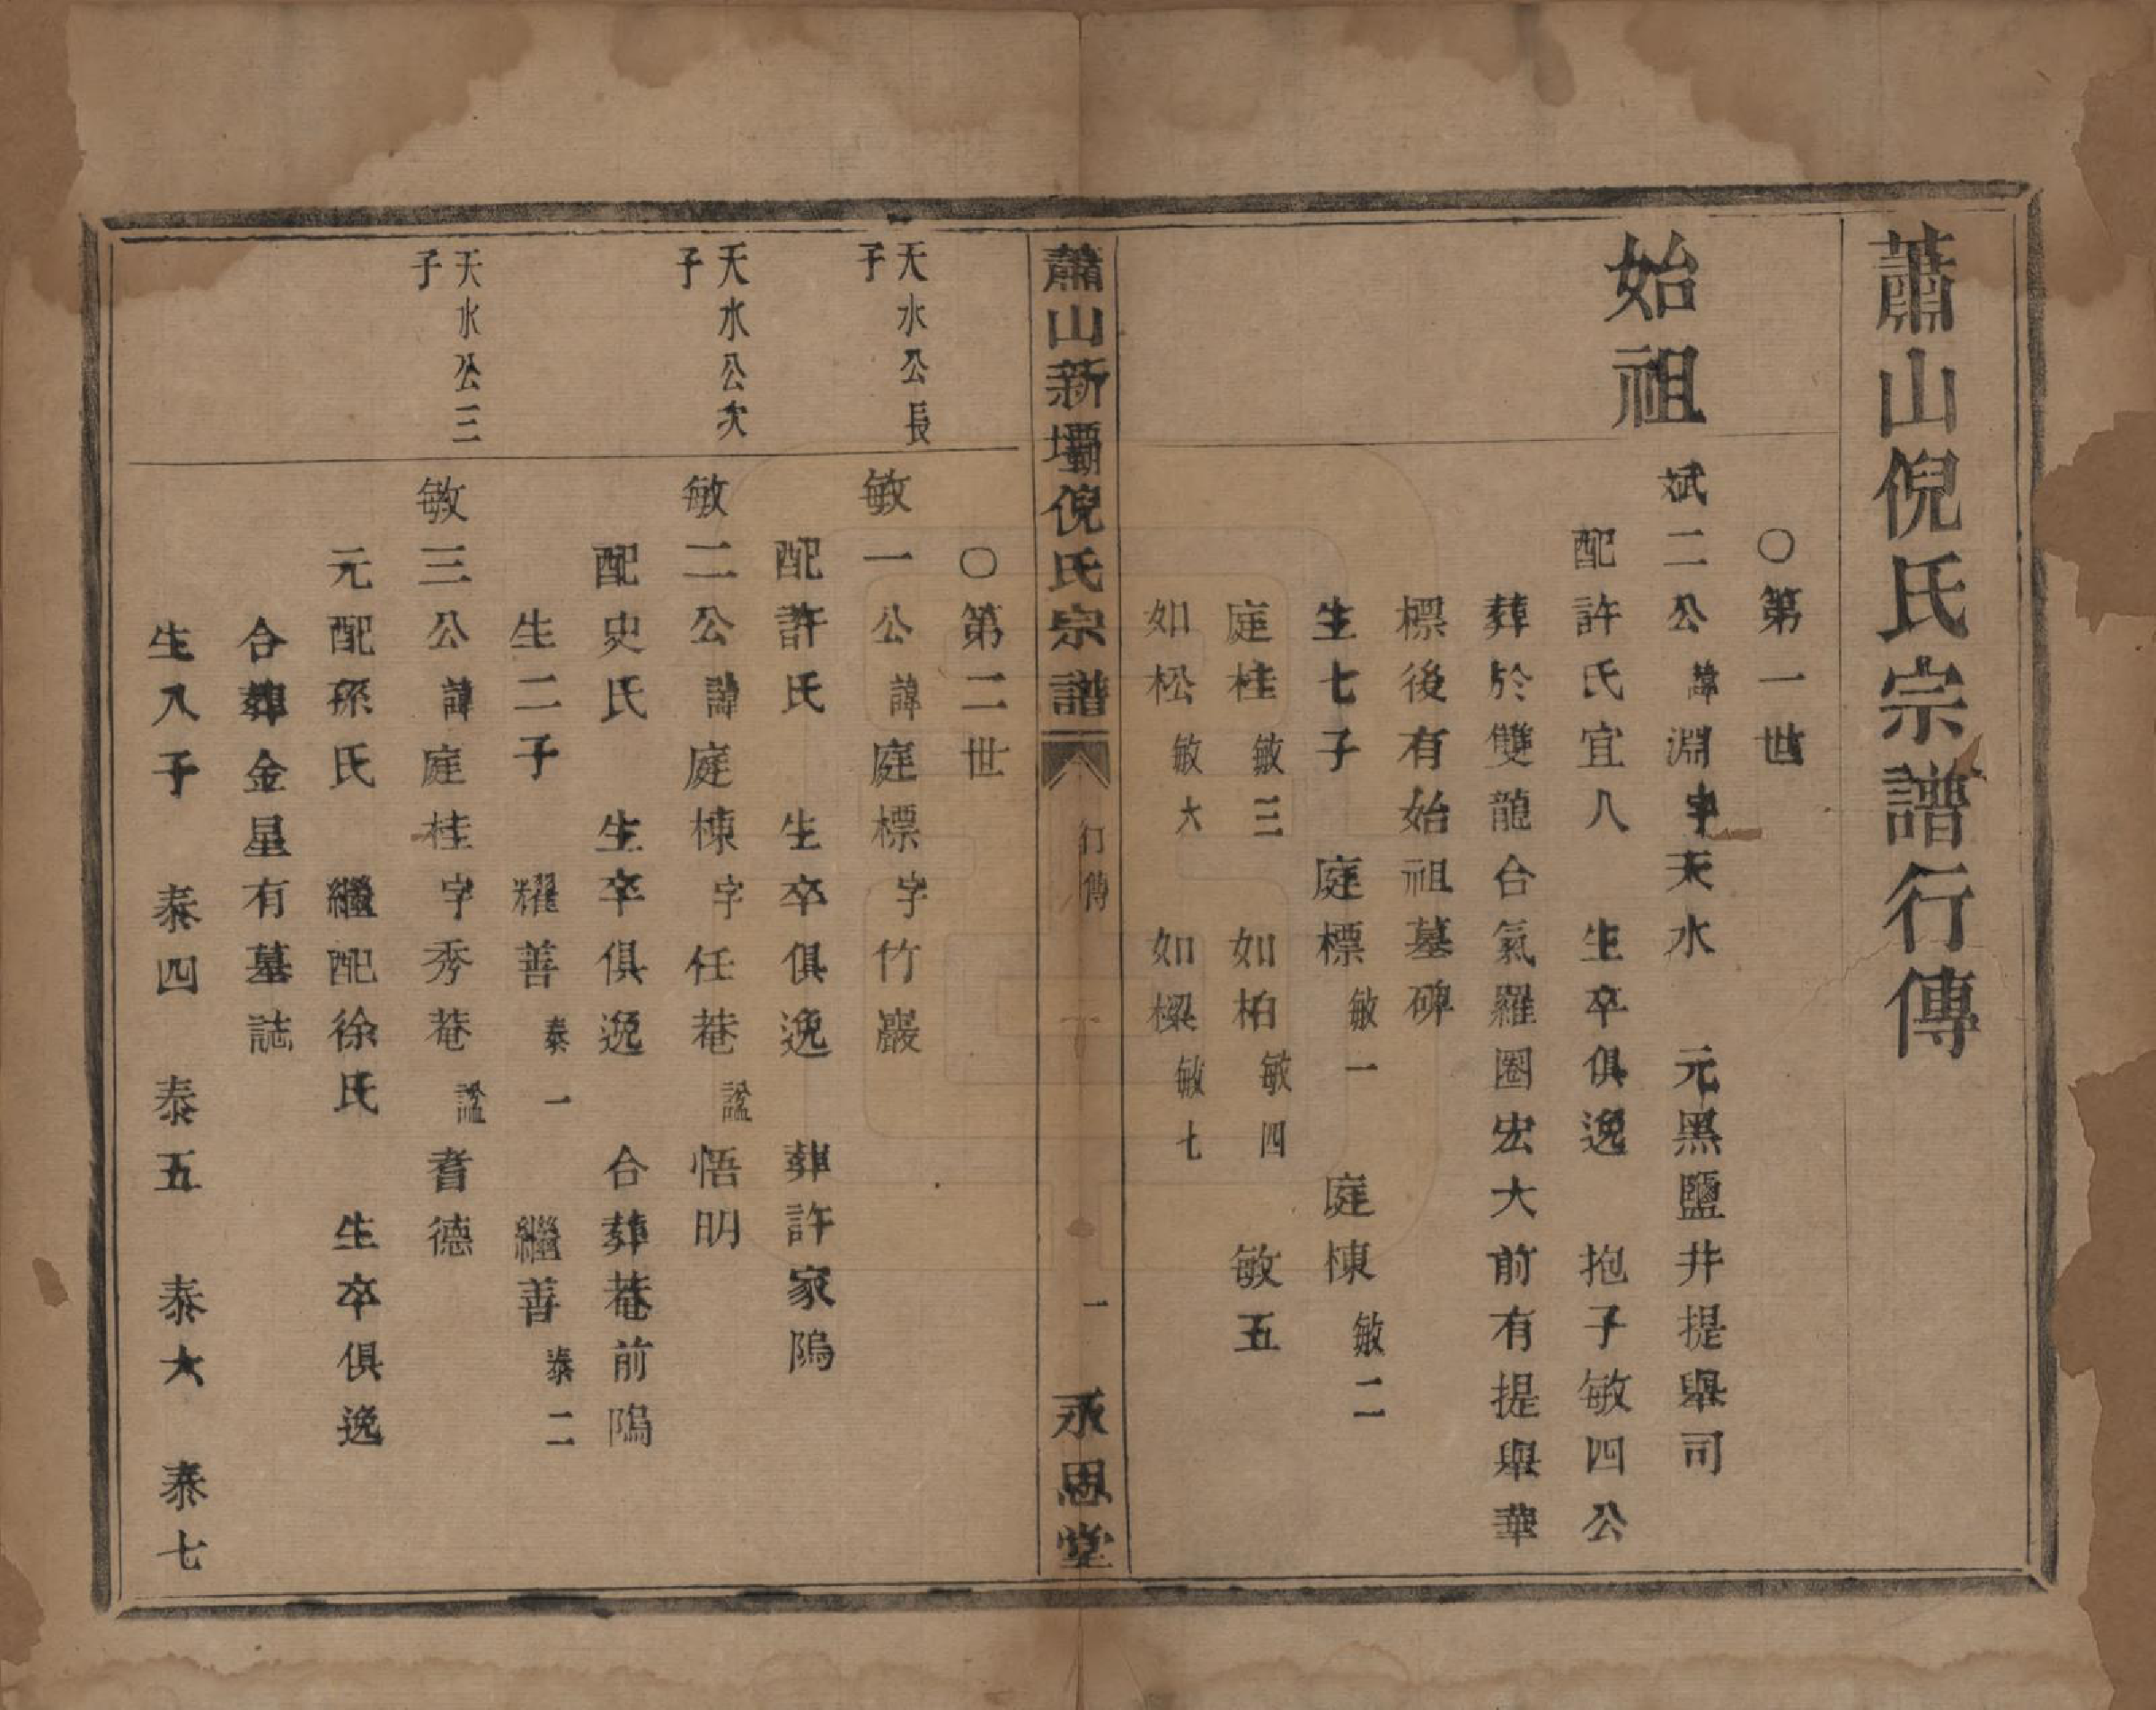 蕭山倪氏宗譜行傳
〇第一世
始祖
斌二公諱淵字天水　元黑鹽井提舉司
配許氏宜人　生卒俱逸　抱子敏四公
葬於雙龍台氣羅圈宏大前有提舉華
標後有始祖墓碑
生七子　庭標敏一　庭棟敏二
庭桂敏三　如柏敏四　敏五
如松敏六　如樑敏七
蕭山新壩倪氏宗譜　行傳　一　永思堂
〇第二世
天水公長子
敏一公諱庭標字竹巖
配許氏　生卒俱逸　葬許家隖
天水公次子
敏二公諱庭棟字任菴諡悟明
配史氏　生卒俱逸　合葬菴前隖
生二子　耀善泰一　繼善泰二
天水公三子
敏三公諱庭桂字秀菴諡耆德
元配孫氏　繼配徐氏　生卒俱逸
合葬金星有墓誌
生八子　泰四　泰五　泰六　泰七